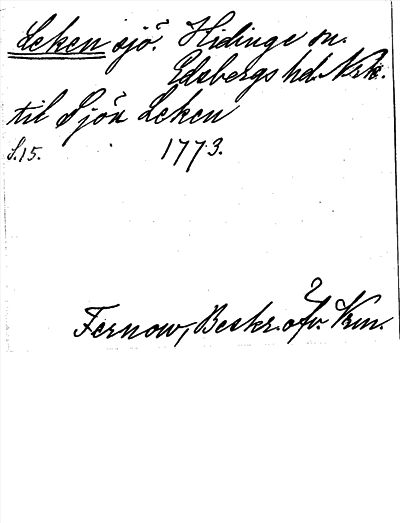 Leken sjö. Hidinge sn.
Edsbergs hd. Nrk.
til Sjön Leken
S. 15. 1773.
2
Fernow, Beskr. öfv. Vrm.